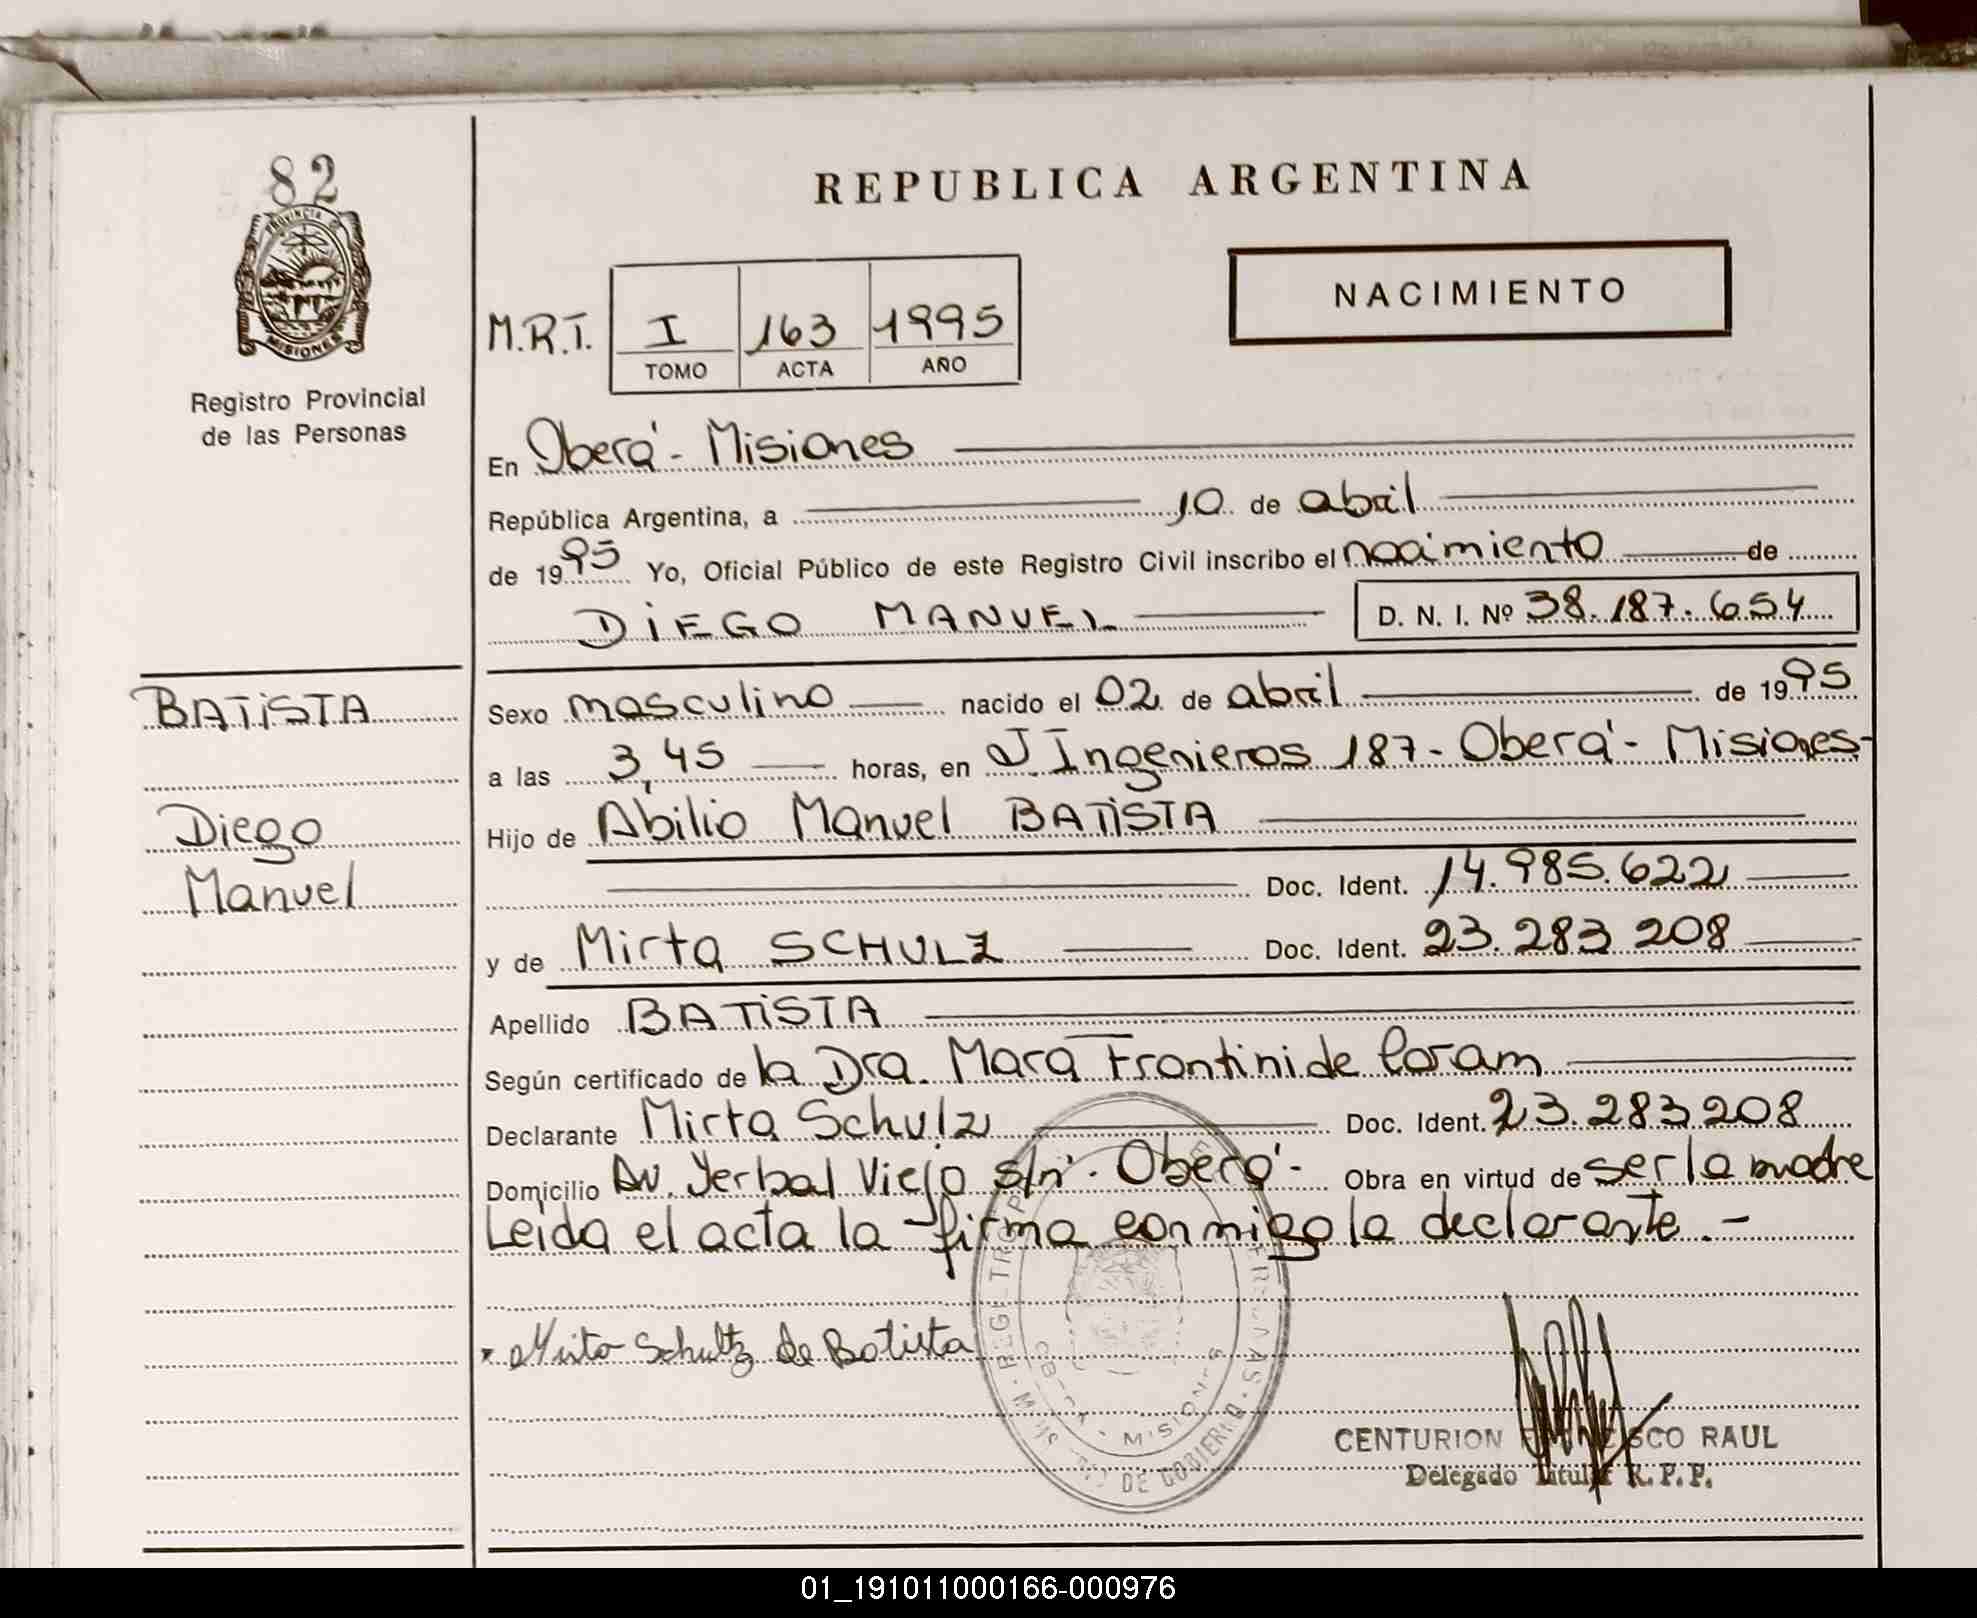 82
PROVINCIA DE
MISIONES
Registro Provincial
de las Personas
REPUBLICA ARGENTINA
NACIMIENTO
M.R.T. I 163 1995
TOMO ACTA AÑO
En Oberá - Misiones
República Argentina, a 10 de abril
de 1995 Yo, Oficial Público de este Registro Civil inscribo el nacimiento de
DIEGO MANUEL D. N. I. Nº 38.187.654
BATISTA
Diego
Manuel
Sexo masculino nacido el 02 de abril de 1995
a las 3,45 horas, en J Ingenieros 187 - Oberá - Misiones-
Hijo de Abilio Manuel BATISTA
Doc. Ident. 14.985.622
y de Mirta SCHULZ Doc. Ident. 23.283.208
Apellido BATISTA
Según certificado de la Dra. Mara Frontini de
Declarante Mirta Schulz Doc. Ident. 23.283.208
Domicilio Av. Yerbal Viejo s/nº - Oberá - Obra en virtud de ser la madre
Leida el acta la firma conmigo la declarante. -
Mirta Schultz de Batista
MISIONES
DE GOBIERNO
CENTURION FRANCISCO RAUL
Delegado Titular R. P. P.
01_191011000166-000976